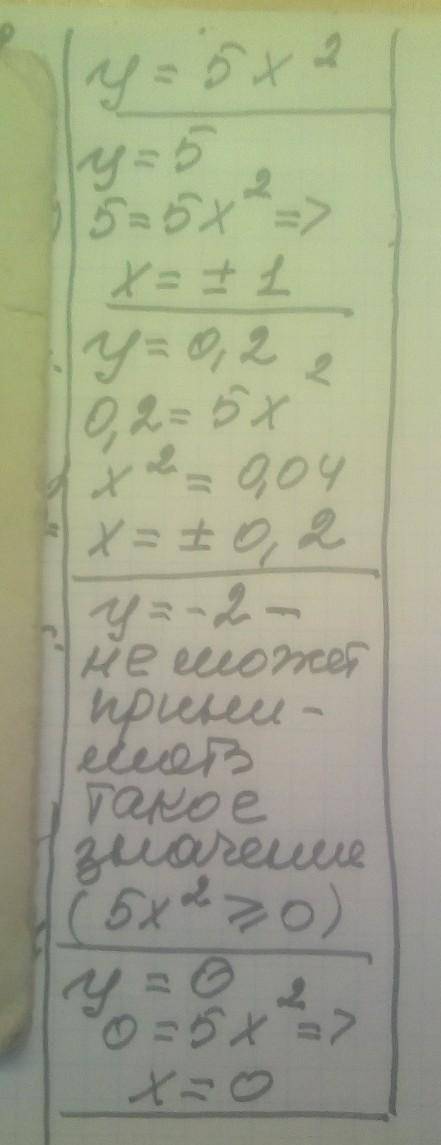 y = 5x²
y = 5
5 = 5x² =>
x = ± 1
y = 0,2
0,2 = 5x²
x² = 0,04
x = ± 0,2
y = -2 -
не может
прини -
мать
такое
значение
(5x² ⩾ 0)
y = 0
0 = 5x² =>
x = 0